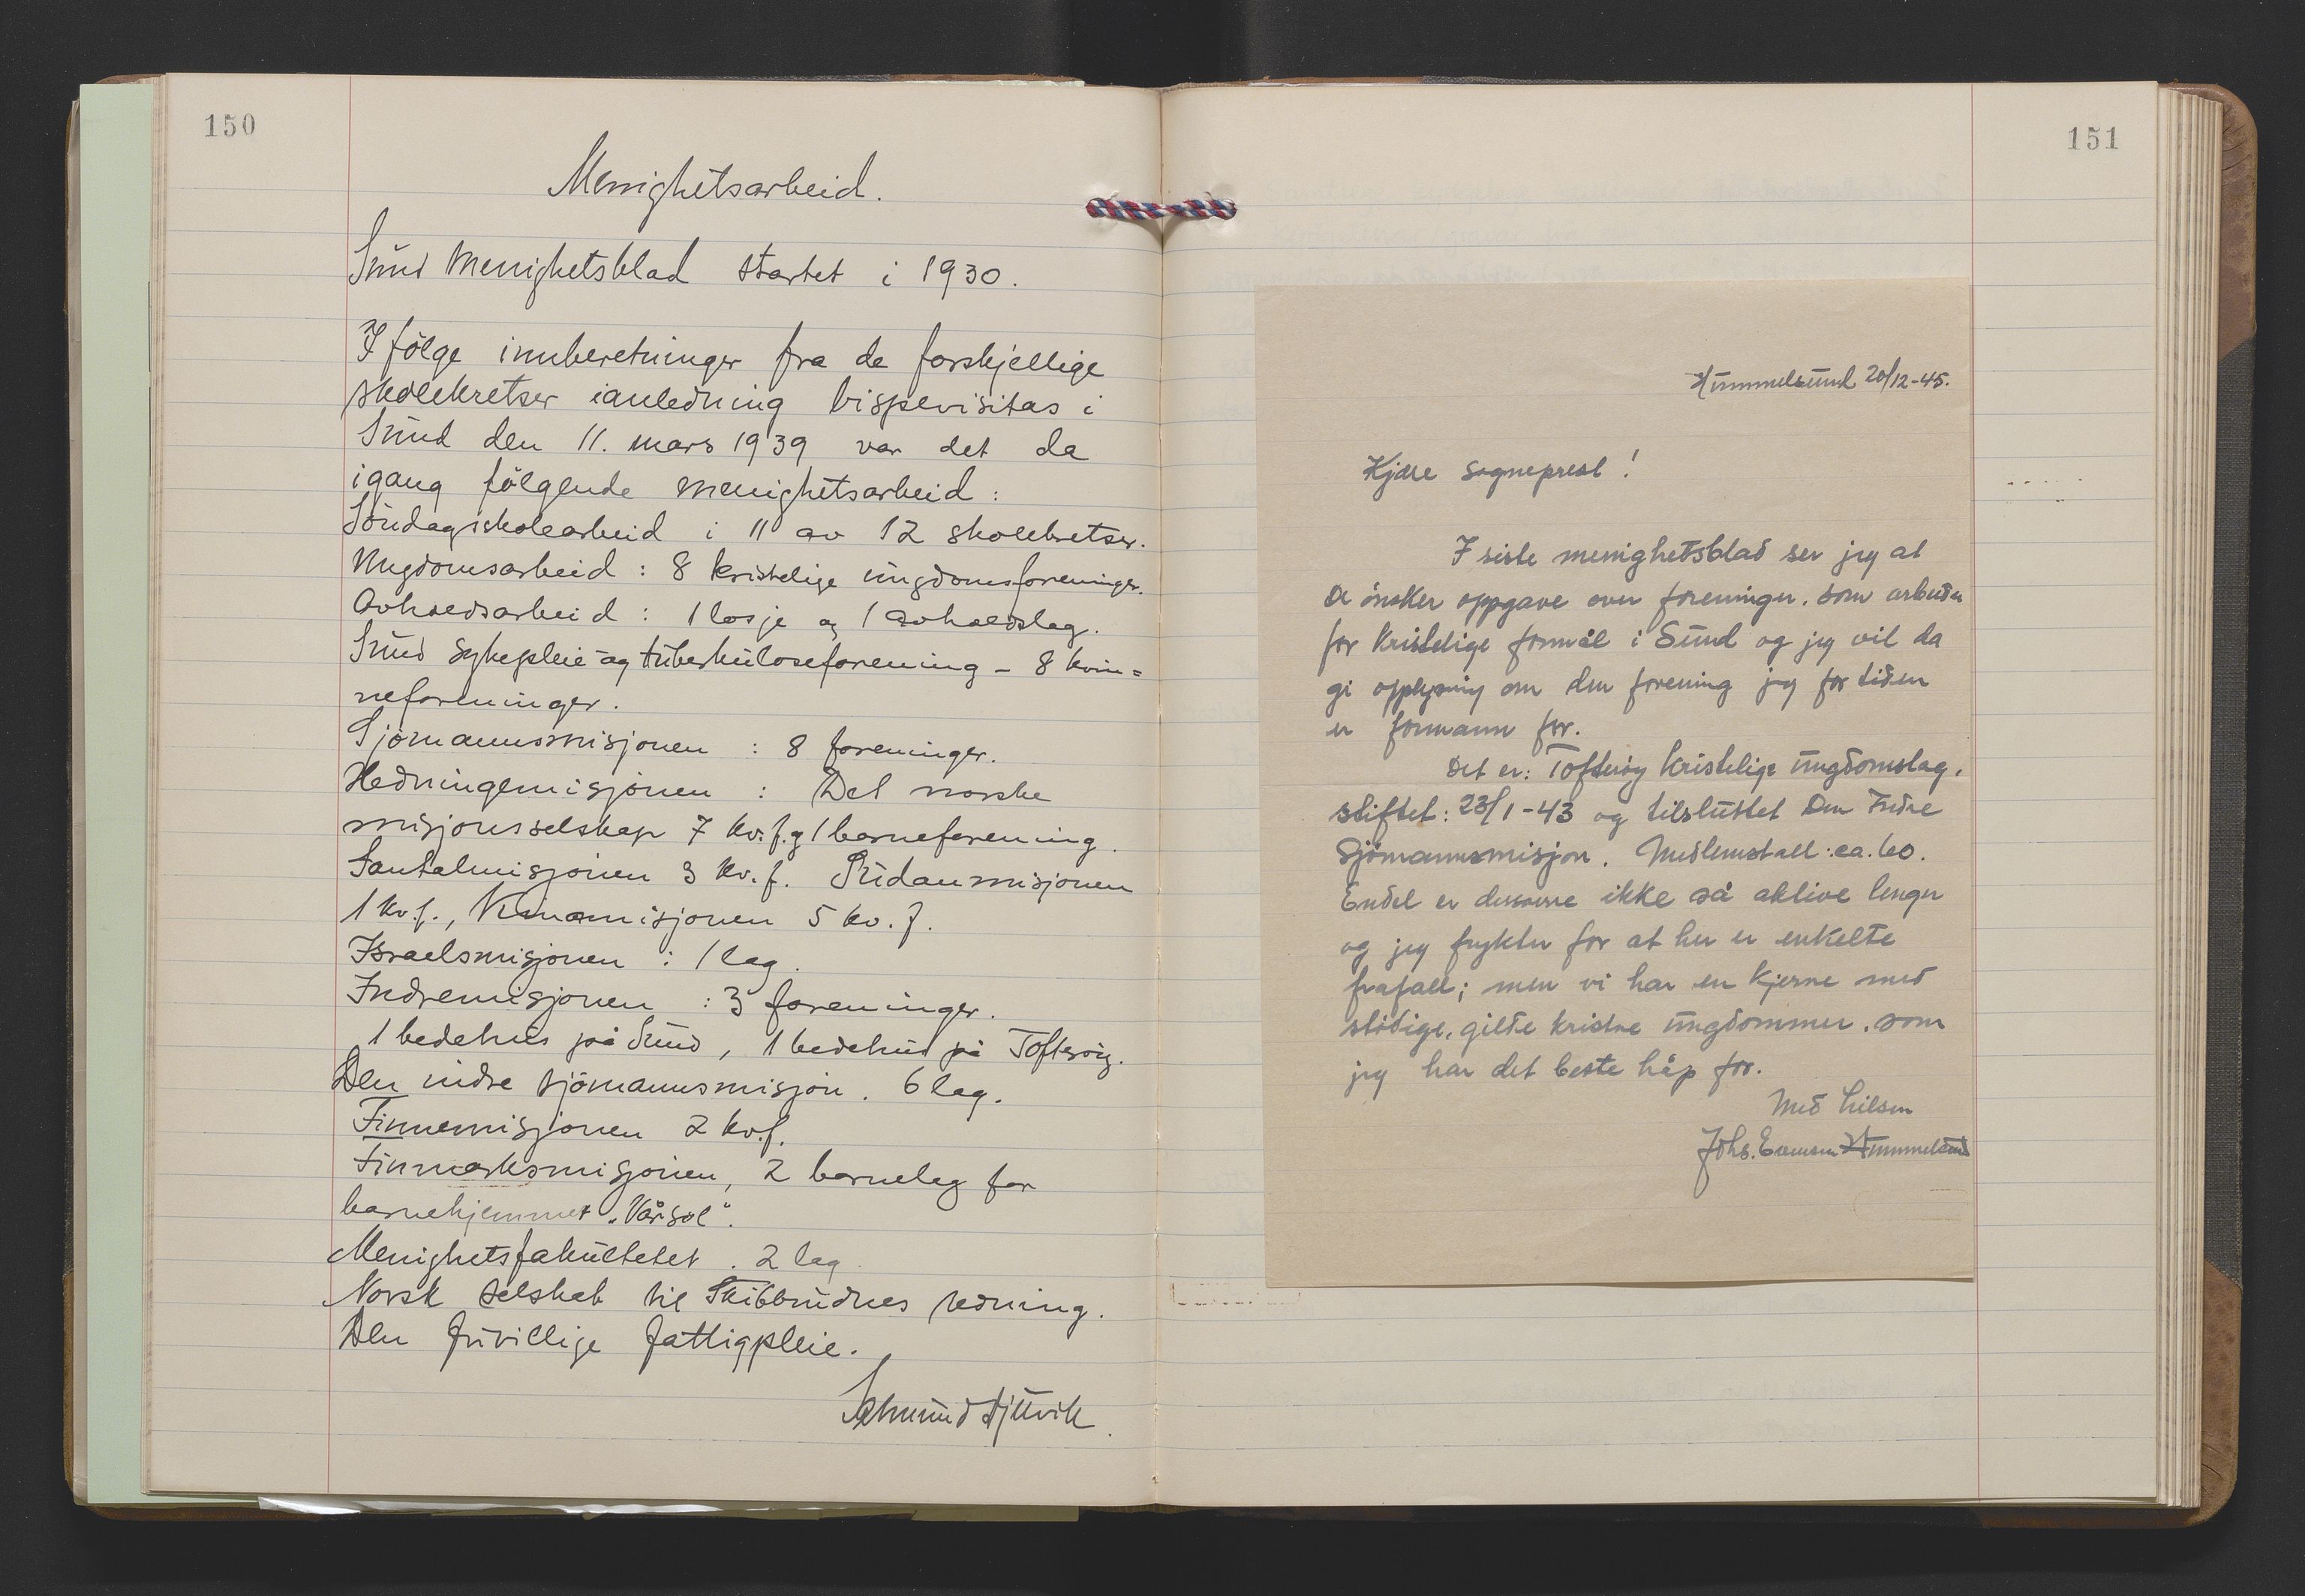 150
Menighetsarbeid.
Sund Menighetsblad startet i 1930.
Ifölge innberetninger fra de forskjellige
skolekretser ianledning bispevisitas i
Sund den 11. mars 1939 var det da
igang fölgende menighetsarbeid:
Söndagsskolearbeid i 11 av 12 skolekretser.
Ungdomsarbeid: 8 kristelige ungdomsforeninger.
Avholdsarbeid: 1 losje og 1 avholdslag.
Sund sykepleie og tuberkuloseforening - 8 kvin=
neforeninger.
Sjömannsmisjonen : 8 foreninger.
Hedningemisjonen : Det norske
misjonsselskap 7 kv.f. og 1 barneforening.
Santalmisjonen 3 kv.f. Sudanmisjonen
1 kv.f., Kinamisjonen 5 kv.f.
Israelsmisjonen : 1 lag.
Indremisjonen : 3 foreninger.
1 bedehus på Sund, 1 bedehus på Tofteröy.
Den indre sjömannsmisjon. 6 lag.
Finnemisjonen 2 kv.f.
Finmarksmisjonen, 2 barnelag for
barnehjemmet „Vårsol“.
Menighetsfakultetet. 2 lag
Norsk selskab til Skibbrudnes redning.
Den frivillige fattigpleie.
151
Hummelsund 20/12-45.
Kjære sogneprest!
I siste menighetsblad ser jeg at
De önsker oppgave over foreninger, som arbeider
for kristelige formål i Sund og jeg vil da
gi opplysning om den forening jeg for tiden
er formann for.
Det er: Tofteröy kristelige ungdomslag,
stiftet: 23/1-43 og tilsluttet Den Indre
Sjömannsmisjon. Medlemstall: ca. 60.
Endel er dessverre ikke så aktive lenger
og jeg frykter for at her er enkelte
frafall; men vi har en kjerne med
stödige, gilde kristne ungdommer, som
jeg har det beste håp for.
Med hilsen
Johs. Evensen Hummelsund